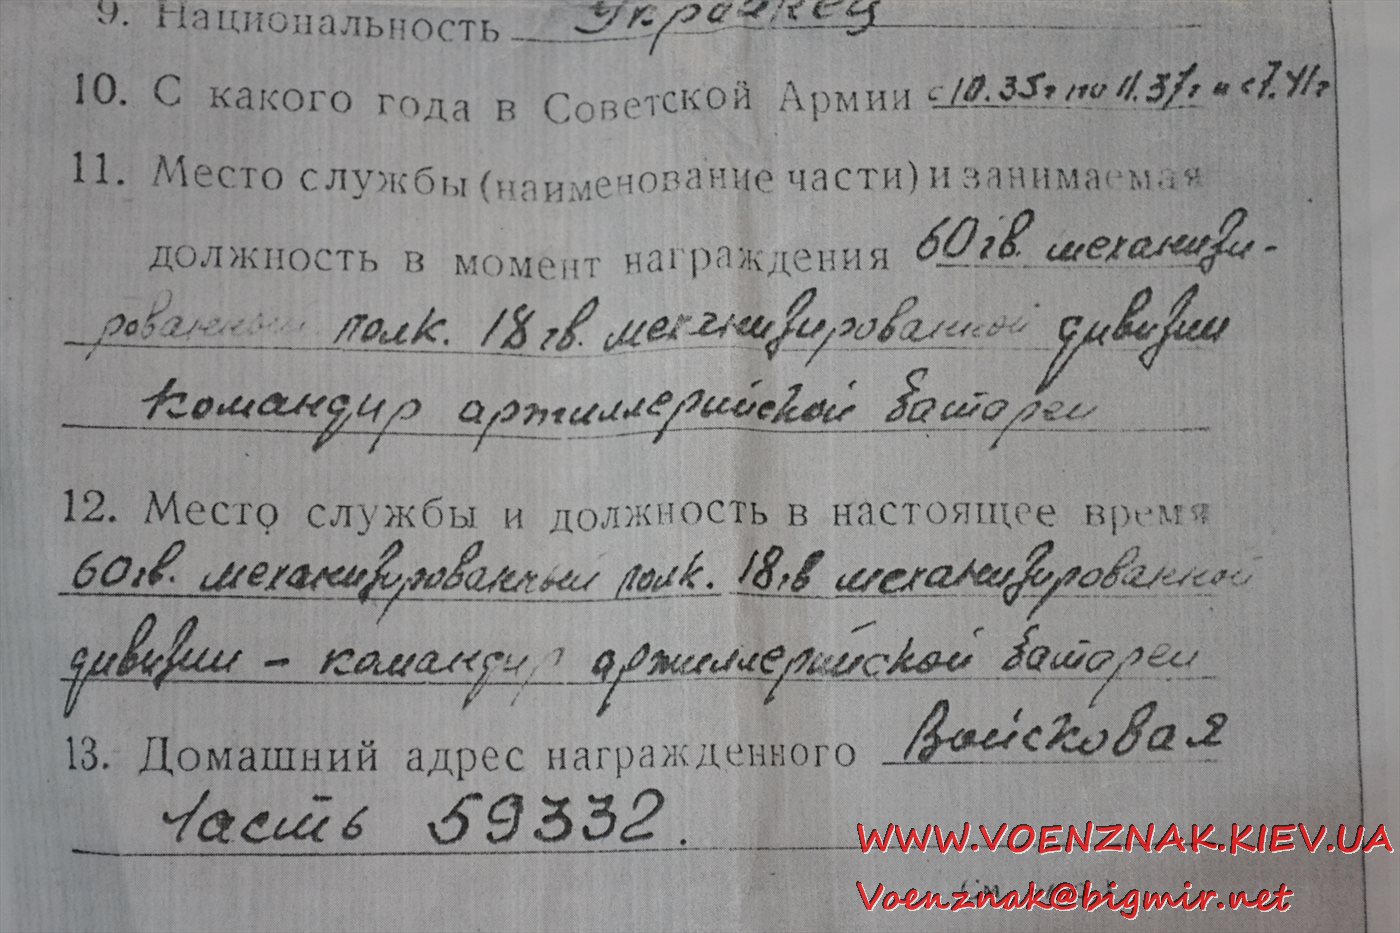 9. Национальность Украинец
10. С какого года в Советской Армии с 10.35г по 11.37г и с 7.41г
11. Место службы (наименование части) и занимаемая
должность в момент награждения 60 гв. механизи-
рованный полк. 18 гв. механизированной дивизии
командир артиллерийской батареи
12. Место службы и должность в настоящее время
60 гв. механизированный полк. 18 гв механизированной
дивизии – командир артиллерийской батареи
13. Домашний адрес награжденного Войсковая
часть 59332.
WWW.VOENZNAK.KIEV.UA
Voenznak@bigmir.net